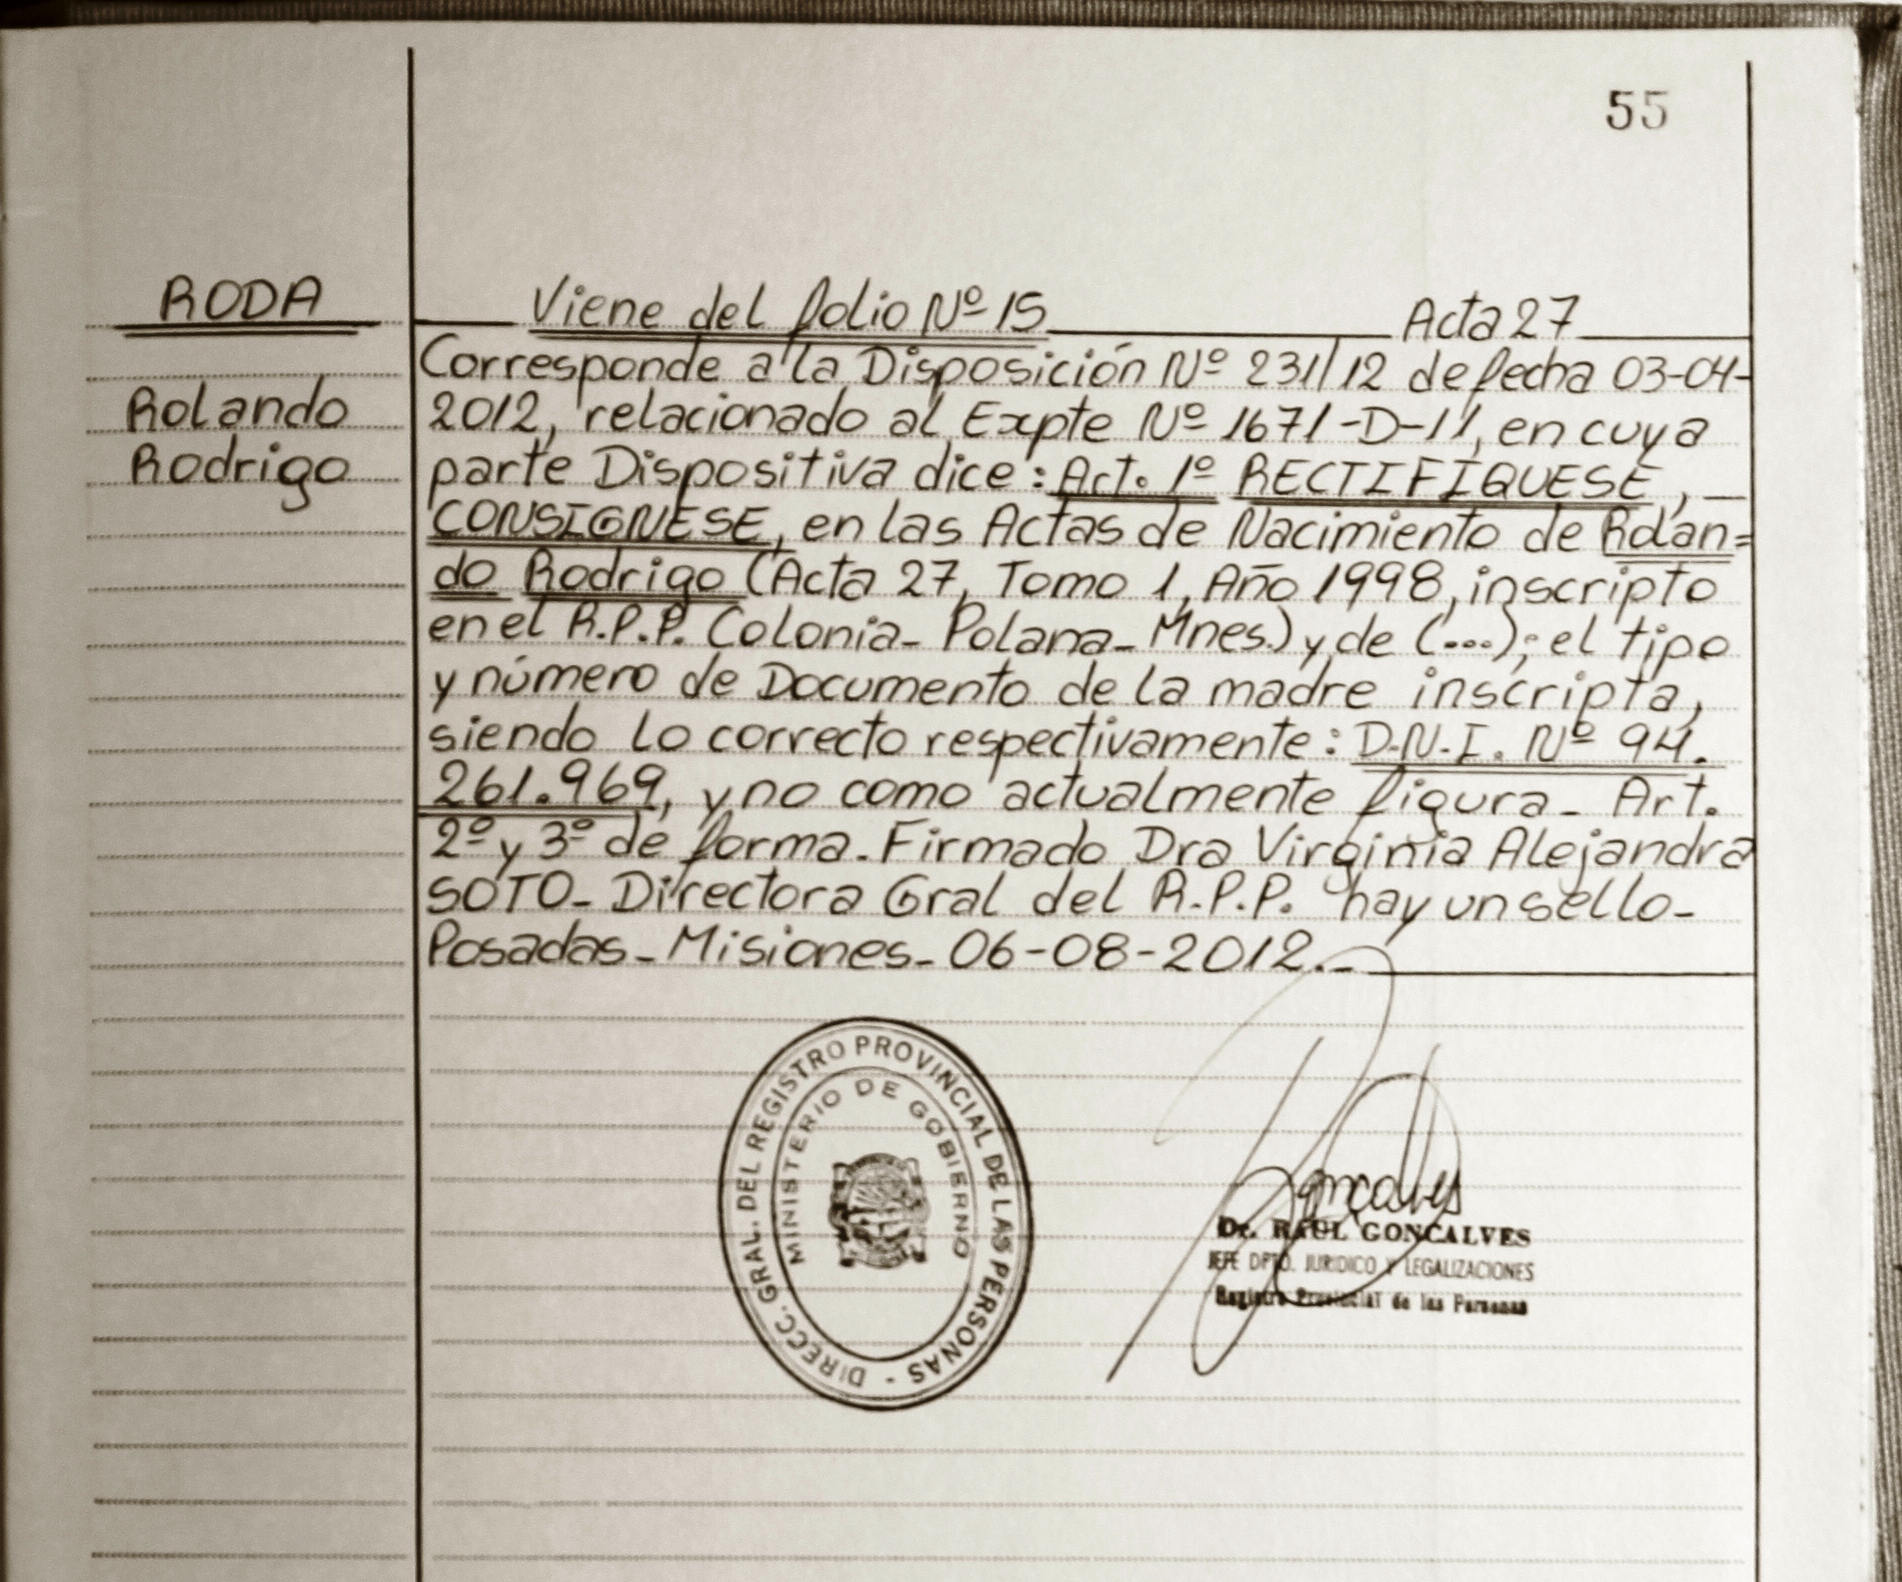 55
RODA
Rolando
Rodrigo
Viene del folio Nº 15 Acta 27
Corresponde a la Disposición Nº 231/12 de fecha 03-04-
2012, relacionado al Expte Nº 1671-D-11, en cuya
parte Dispositiva dice: Art. 1º RECTIFÍQUESE,
CONSIGNESE, en las Actas de Nacimiento de Rolan=
do Rodrigo (Acta 27, Tomo 1, Año 1998, inscripto
en el R.P.P. Colonia- Polana- Mnes.) y de (...); el tipo
y número de Documento de la madre inscripta,
siendo lo correcto respectivamente: D.N.I. Nº 94.
261.969, y no como actualmente figura- Art.
2º y 3º de forma. Firmado Dra Virginia Alejandra
SOTO- Directora Gral del R.P.P. hay un sello-
Posadas- Misiones- 06-08-2012.-
DIRECC. GRAL. DEL REGISTRO PROVINCIAL DE LAS PERSONAS -
MINISTERIO DE GOBIERNO
Goncalves
Dr. RAUL GONCALVES
JEFE DPTO. JURIDICO Y LEGALIZACIONES
Registro Provincial de las Personas